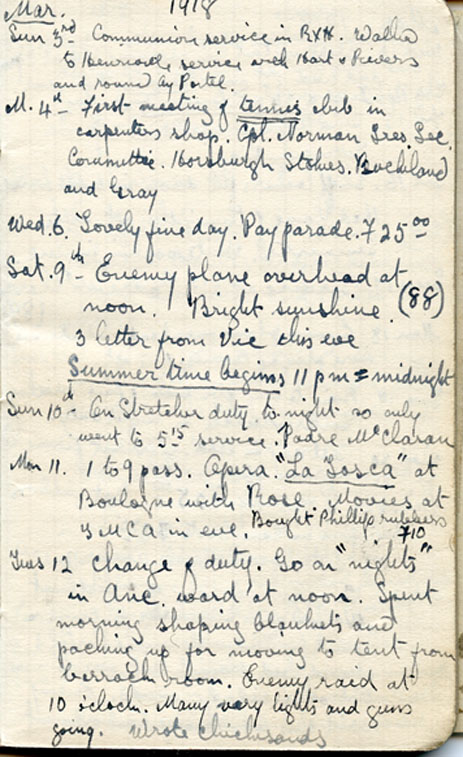 Mar. 1918
Sun 3rd Communion service in RXH. Walk
to service with Hart &
and round by Portel.
M. 4th - First meeting of tennis club in
carpenters shop. Cpl. Norman Sec.
Committee. Horsburgh Stokes. Buckland
and Gray
Wed. 6. Lovely fine day. Pay parade. F 25 00
Sat. 9th - Enemy plane overhead at
noon. Bright sunshine. (88)
3 letter from Vic this eve
Summer time begins 11 pm = midnight
Sun 10th - On Stretcher duty to night so only
went to 5 15 service. Padre McClaran
Mon 11. 1 to 9 pass. Opera. "La Tosca" at
Boulogne with Rose. Movies at
YMCA in eve. Bought Phillip rubbers
F10
Tues 12 change of duty. Go on "nights"
in ward at noon. Spent
morning shaping blankets and
packing up for moving to tent from
barrack room. Enemy raid at
10 o'clock. Many very lights and guns
going. Wrote